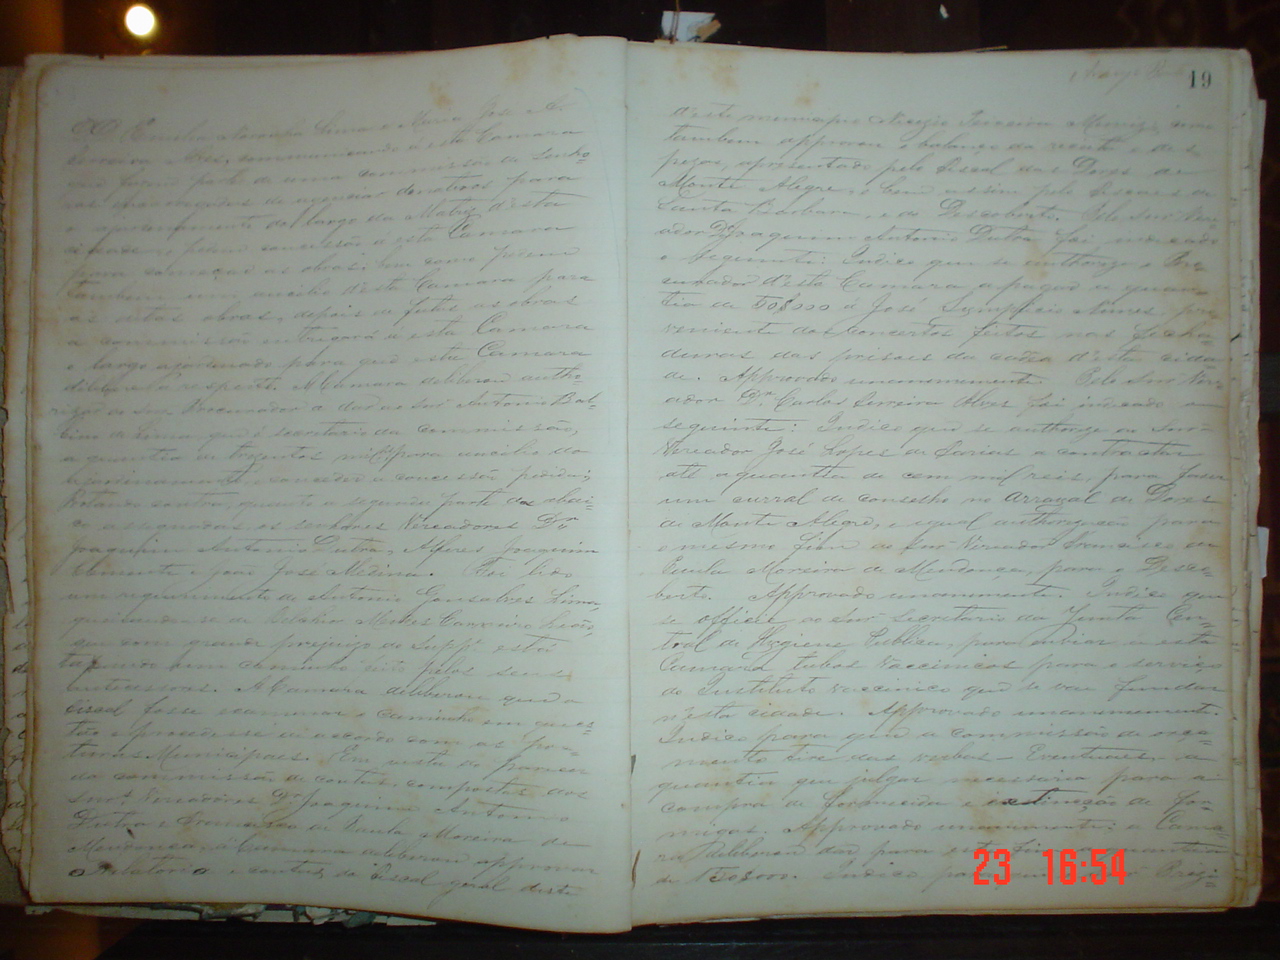 Emilia Noronha Lima e Maria José
Ferreira Alves, communicando á esta Camara
que fazem parte de uma commissão de senho-
ras encarregadas de agenciar donativos para
o ajardinamento do largo da Matriz d'esta
cidade, e pedem concessão a esta Camara
para começar as obras, bem como pedem
tambem um auxilio d'esta Camara para
as ditas obras, depois de feitas as obras
a commissão entregará á esta Camara
o largo ajardinado para que esta Camara
delibere a respeito. A Camara deliberou autho-
rizar ao seu Procurador a dar ao Snr Antonio Bal-
bino de Lima que é secretario da commissão,
a quantia de trezentos mil para auxilio do
ajardinamento, e conceder a concessão pedida;
Votando contra, quanto a segunda parte os abai-
xo assignados os senhores Vereadores Dr
Joaquim Antonio Dutra, Alferes Joaquim
Clemente e José Medina. Foi lido
um requerimento de Antonio Gonsalves Lima,
queixando-se de Carneiro Leão,
que com grande prejuizo do Suppe está
tapando um caminho feito pelos seus
antecessores. A Camara deliberou que o
fiscal fosse examinar o caminho em ques-
tão e procedesse de accordo com as Pos-
turas Municipaes. Em vista do parecer
da commissão de contas, composta dos
snrs Vereadores Dr Joaquim Antonio
Dutra e Francisco de Paula Moreira de
Mendonça, a Camara deliberou approvar
o Relatorio e contas do Fiscal geral deste
19
d'este municipio Teixeira Muniz,
tambem approvou o balanço da receita e des-
pezas, apresentado pelo Fiscal das Dores de
Monte Alegre, e bem assim pelo Fiscaes de
Santa Barbara, e do Descoberto. Pelo Snr Ver-
eador Dr Joaquim Antonio Dutra foi indicado
o seguinte: Indico que se authorize o Pro-
curador d'esta Camara a pagar a quan-
tia de 50$000 á José Simplicio Nunes, pro-
veniente dos concertos feitos nas fecha-
duras das prisões da cadea d'esta cida-
de. Approvado unanimemente. Pelo Snr Ver-
eador Dr Carlos Ferreira Alves foi indicado o
seguinte: Indico que se authorize ao Snr
Vereador José Lopes de Farias a contractar
até a quantia de cem mil reis, para fazer
um curral de conselho no Arrayal de Dores
de Monte Alegre, e igual authorização para
o mesmo fim ao Snr Vereador Francisco de
Paula Moreira de Mendonça, para o Desco-
berto. Approvado unanimemente. Indico que
se officie ao Snr Secretario da Junta Cen-
tral de Hygiene Publica, para enviar a esta
Camara tubos vaccinicos para o serviço
do Instituto vaccinico que se vae fundar
n'esta cidade. Approvado unanimemente.
Indico para que a commissão de orça-
mento tire das verbas - Eventuaes, a
quantia que julgar necessaria para a
compra de formicida e extincção de for-
migas. Approvado unanimemente; e a Cama-
ra deliberou dar para este fim a quantia
de 150$000. Indico
23 16:54